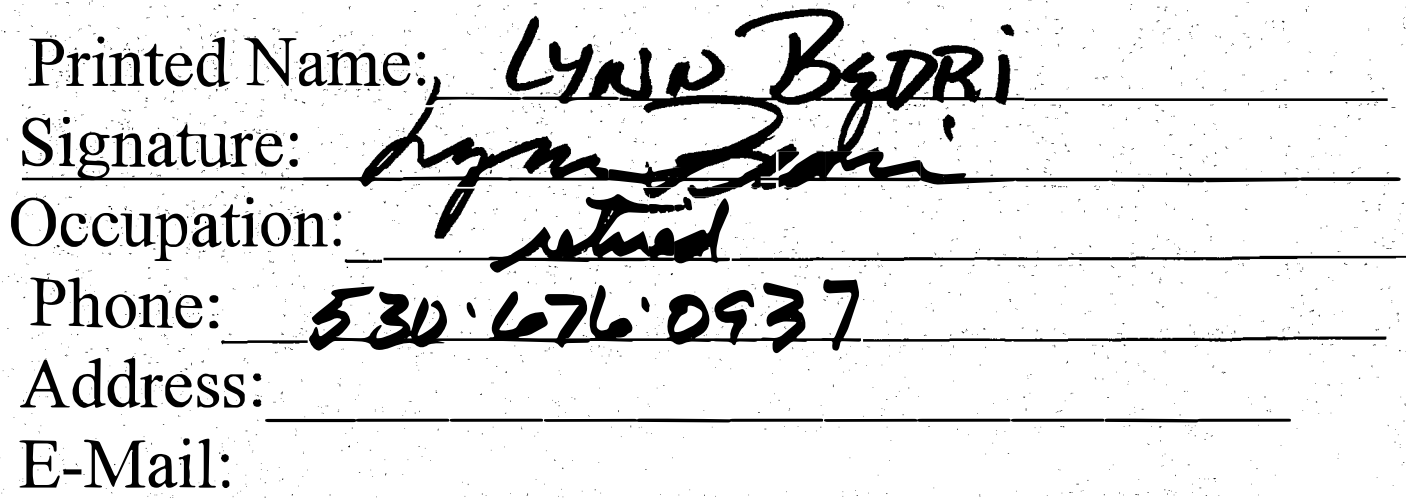 Printed Name: LYNN BEDRI
Signature: Lynn Bedri
Occupation: retired
Phone: 530·676·0937
Address:
E-Mail: